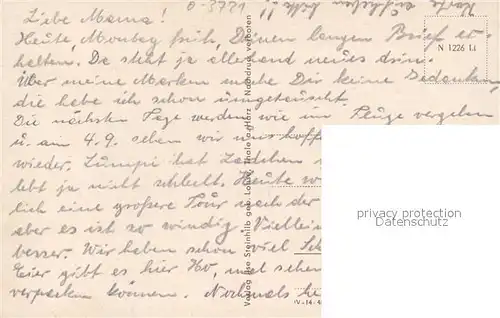 0-3721
Karte aufheben bitte !!
Liebe Mama!
Heute, Montag früh, Deinen langen Brief er-
halten. Da steht ja allerhand neues drin.
Über meine Marken mache Dir keine Gedanken,
die habe ich schon umgetauscht.
Die nächsten Tage werden wie im Fluge vergehen
u. am 4.9. sehen wir uns hoff
wieder. Lumpi hat
lebt ja nicht schlecht. Heute w
lich eine größere Tour nach der
aber es ist so windig. Vielleic
besser. Wir haben schon viel
Eier gibt es hier
verpacken können. Nochmals he
N 1226 Li
Verlag Ilse Steinhilb geb. Lohöf, Thale a. Harz Nachdruck verboten
IV-14-4
privacy protection
watermark